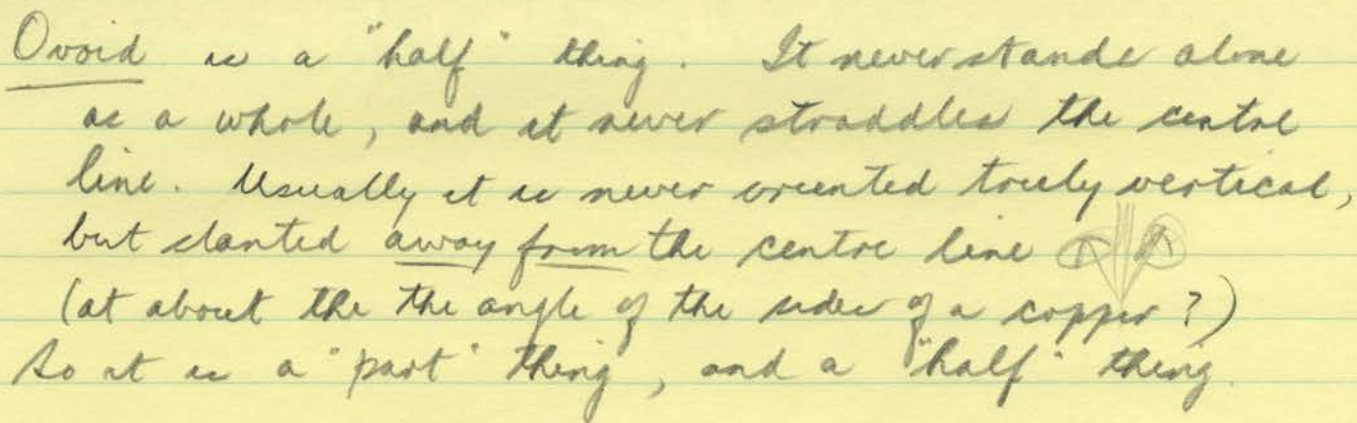 Ovoid is a "half" thing. It never stands alone
as a whole, and it never straddles the centre
line. Usually it is never oriented truly vertical,
but slanted away from the centre line
(at about the the angle of the sides of a copper?)
So it is a "part" thing, and a "half" thing.